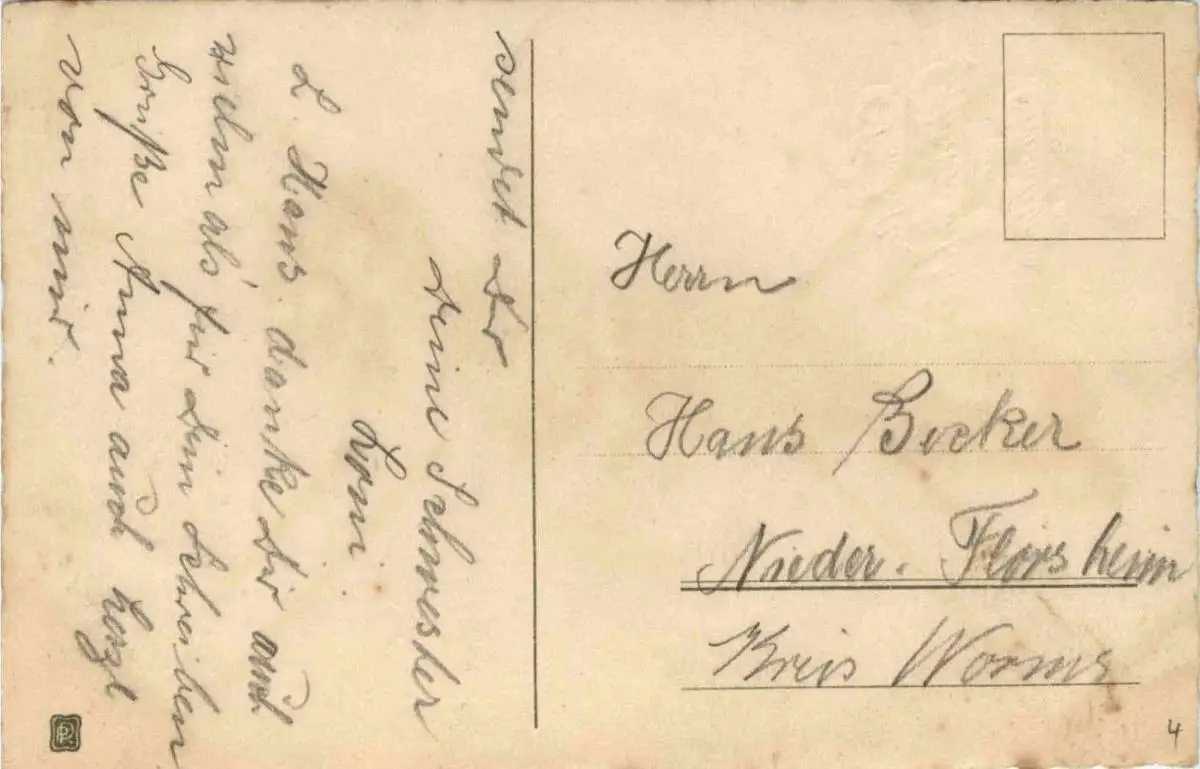 sendet Dir
Deine Schwester
Loni.
L. Hans. danke Dir auch
vielmals für dein Schreiben
Grüße Anna auch herzl.
von mir.
Herrn
Hans Becker
Nieder-Flörsheim
Kreis Worms
4